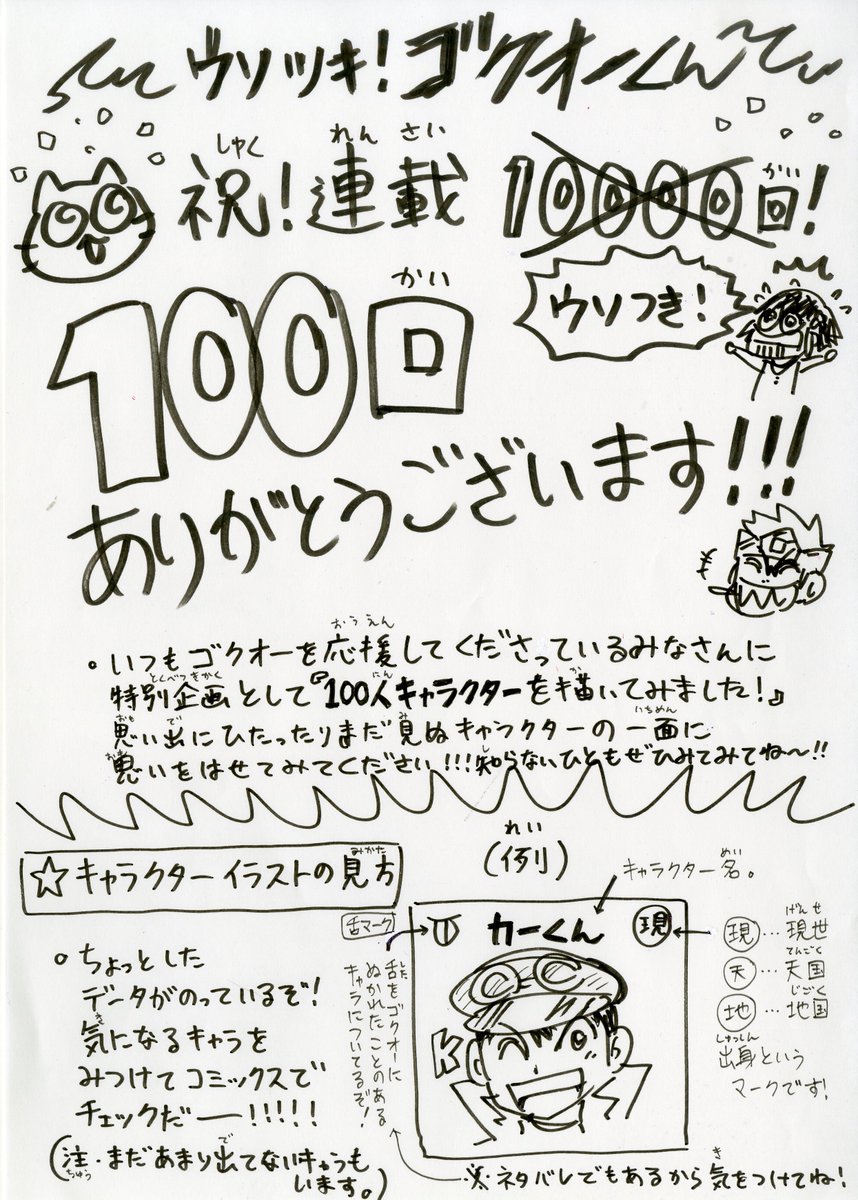 ウソツキ!ゴクオーくん
祝!連載 10000回!
しゅく れんさい かい
ウソつき!
100回
かい
ありがとうございます!!!
いつもゴクオーを応援してくださっているみなさんに
おうえん
特別企画として『100人キャラクターを描いてみました!』
とくべつきかく にん か
思い出にひたったりまだ見ぬキャラクターの一面に
おも で み いちめん
思いをはせてみてください!!!知らないひともぜひみてみてね〜!!
おも し
☆キャラクターイラストの見方
みかた
(例)
れい
キャラクター名。
めい
。ちょっとした
データがのっているぞ!
気になるキャラを
き
みつけてコミックスで
チェックだー!!!!!
(注・まだあまり出てないキャラも
ちゅう で
います。)
舌マーク
舌をゴクオーに
した
ぬかれたことのある
キャラについてるぞ!
カーくん
現
K
現…現世
げんせ
天…天国
てんごく
地…地国
じごく
出身という
しゅっしん
マークです!
※ネタバレでもあるから気をつけてね!
き